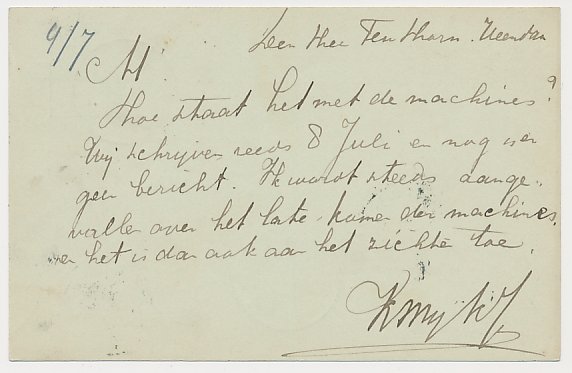 9/7
Den Heer Ten Horn. Veendam
M.
Hoe staat het met de machines?
Wij schrijven reeds 8 Juli en nog is er
geen bericht. Ik wordt steeds aange-
vallen over het late komen der machines.
en het is dan ook aan het zichten toe.